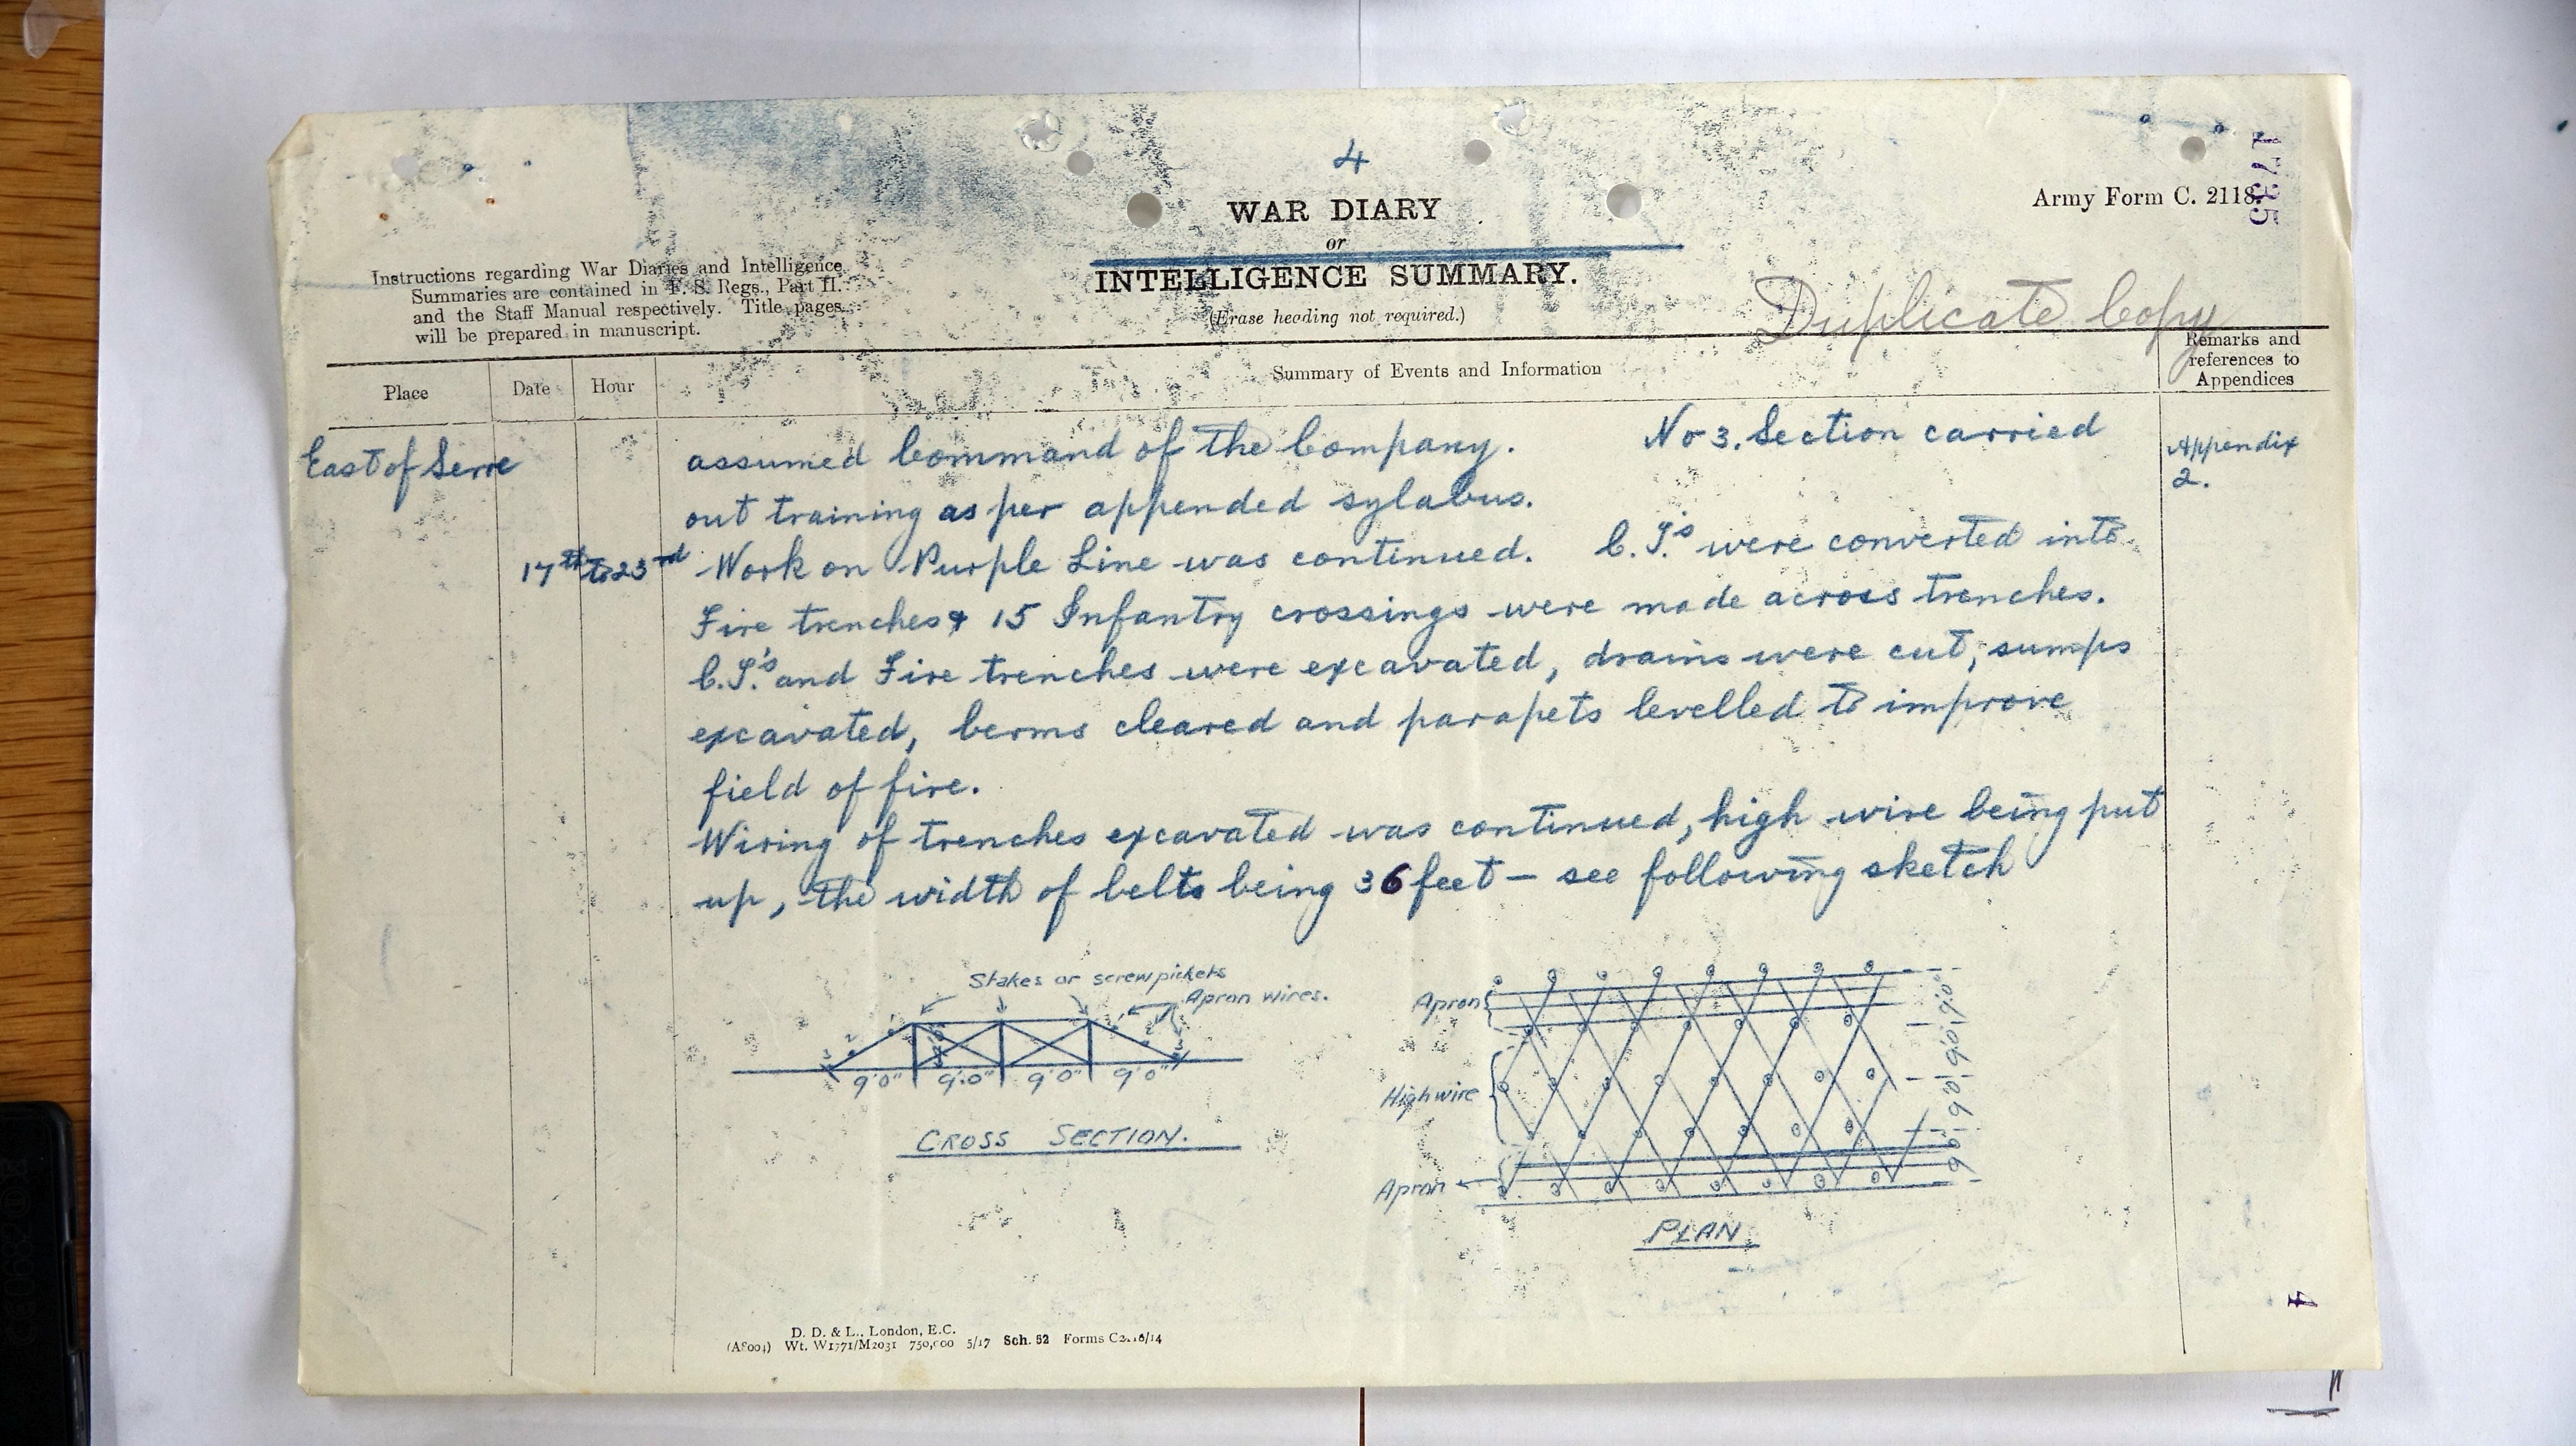 4
17335
WAR DIARY
Army Form C. 2118.
or
INTELLIGENCE SUMMARY.
Instructions regarding War Diaries and Intelligence
Summaries are contained in F. S. Regs., Part II.
and the Staff Manual respectively. Title pages
will be prepared in manuscript.
(Erase heading not required.)
Duplicate Copy
Place
Date
Hour
Summary of Events and Information
Remarks and
references to
Appendices
East of Serre
assumed Command of the Company. No 3. Section carried
Appendix
2.
out training as per appended sylabus.
17th to 23rd Work on Purple Line was continued. C.T.'s were converted into
Fire trenches & 15 Infantry crossings were made across trenches.
C.T.'s and Fire trenches were excavated, drains were cut, sumps
excavated, berms cleared and parapets levelled to improve
field of fire.
Wiring of trenches excavated was continued, high wire being put
up, the width of belts being 36 feet — see following sketch
Stakes or screwpickets
Apron wires.
9'0" 9'.0" 9'0" 9'0"
CROSS SECTION.
Apron
High wire
Apron
9'0" 9'0" 9'0" 9'0"
PLAN.
4
D. D. & L., London, E.C.
(A8004) Wt. W1771/M2031 750,000 5/17 Sch. 52 Forms C2118/14